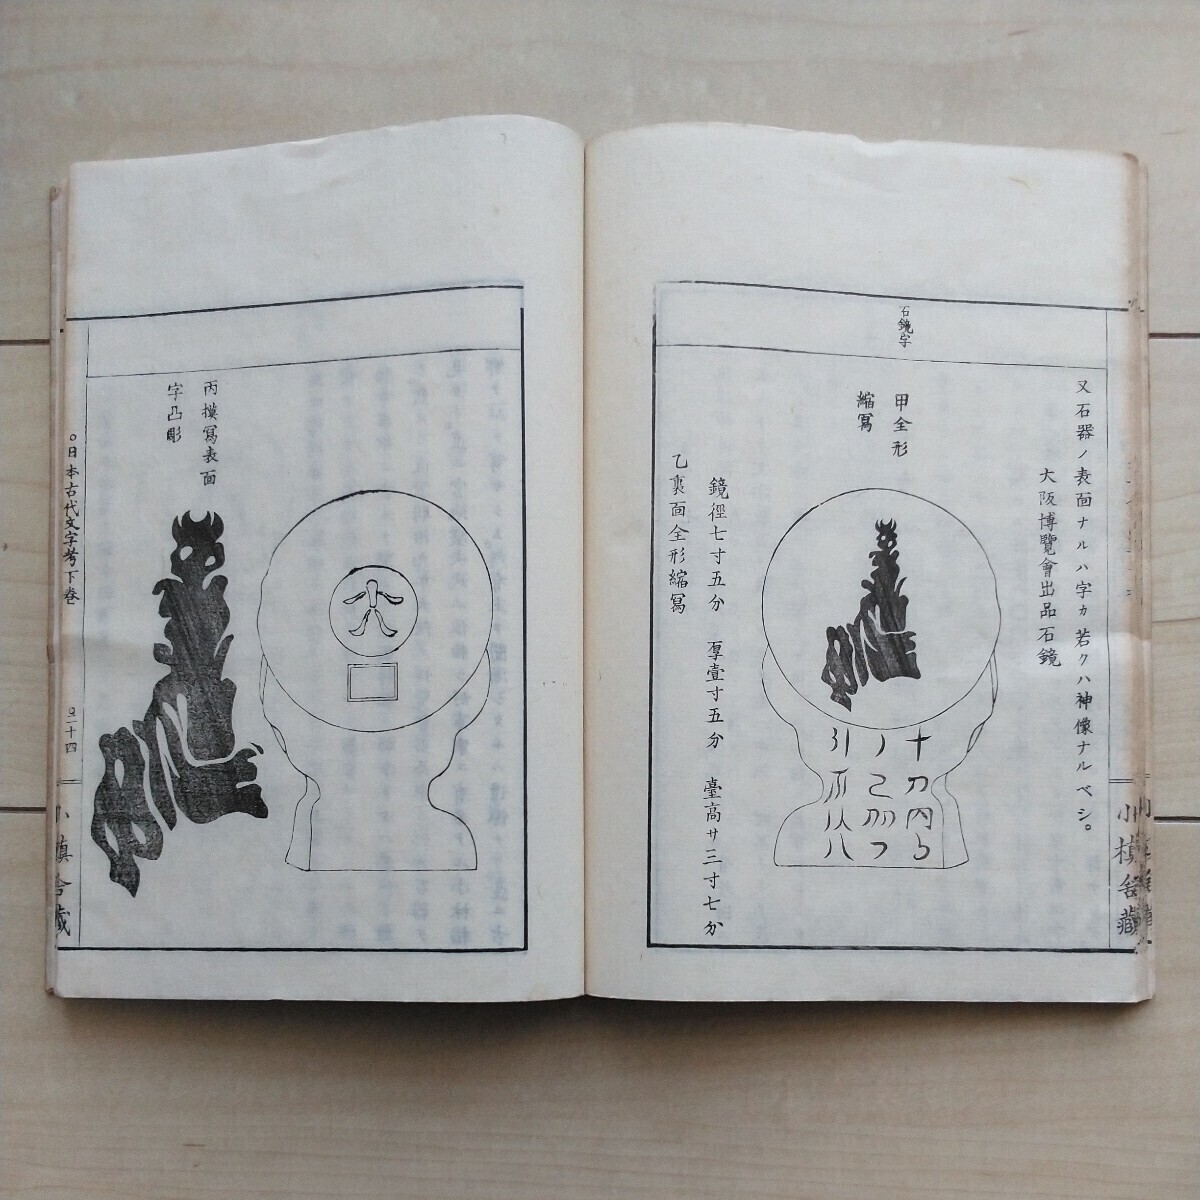 又石器ノ表面ナルハ字カ若クハ神像ナルベシ。
大阪博覽會出品石鏡
石鏡字
甲全形
縮寫
鏡徑七寸五分 厚壹寸五分 臺高サ三寸七分
乙裏面全形縮寫
小槙舎藏
丙摸寫表面
字凸彫
○日本古代文字考下巻
○二十四
小槙舎藏